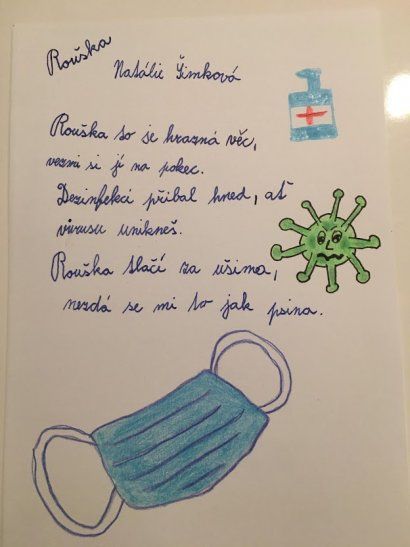 Rouška
Natálie Šimková
Rouška to je hrazná věc,
vezmi si jí na pokec.
Dezinfekci přibal hned, ať
virusu unikneš.
Rouška tlačí za ušima,
nezdá se mi to jak psina.